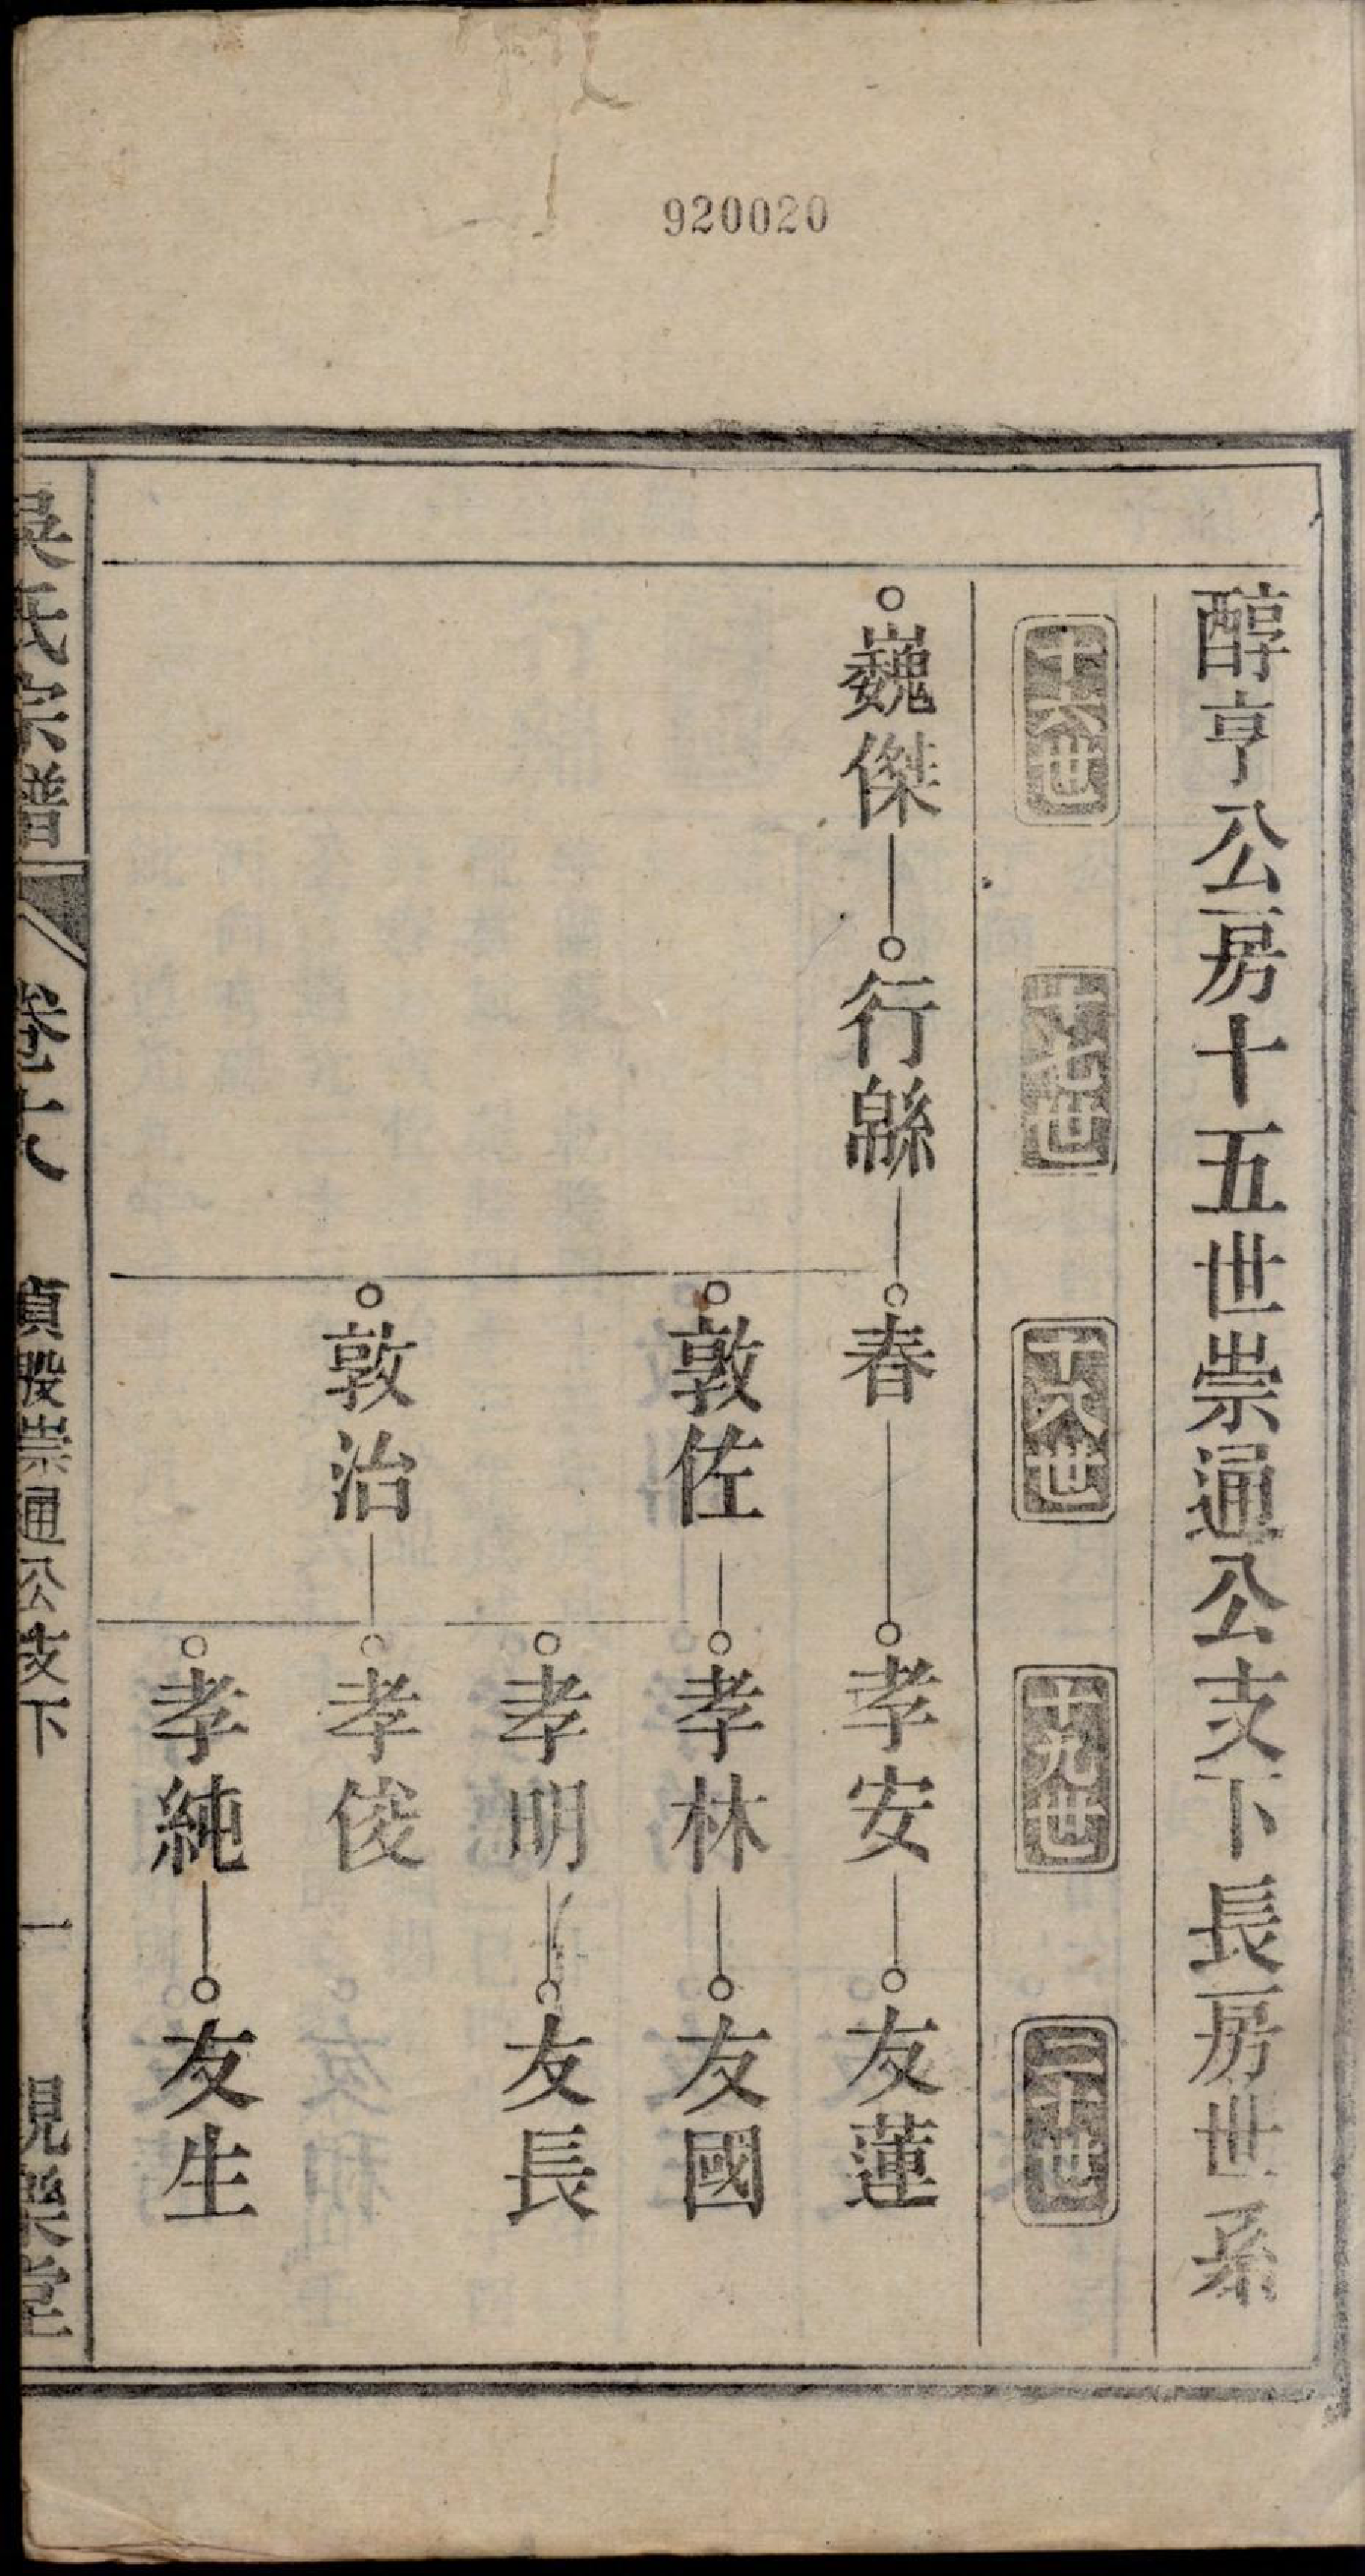 920020
醇亨公房十五世崇通公支下長房世系
十六世
十七世
十八世
十九世
二十世
巍傑
行緜
春
孝安
友蓮
敦佐
孝林
友國
孝明
友長
敦治
孝俊
孝純
友生
吳氏宗譜
貞股崇通公支下
一